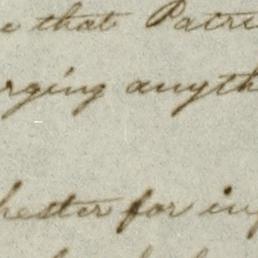 e that Patri
rging anyth
hester for in